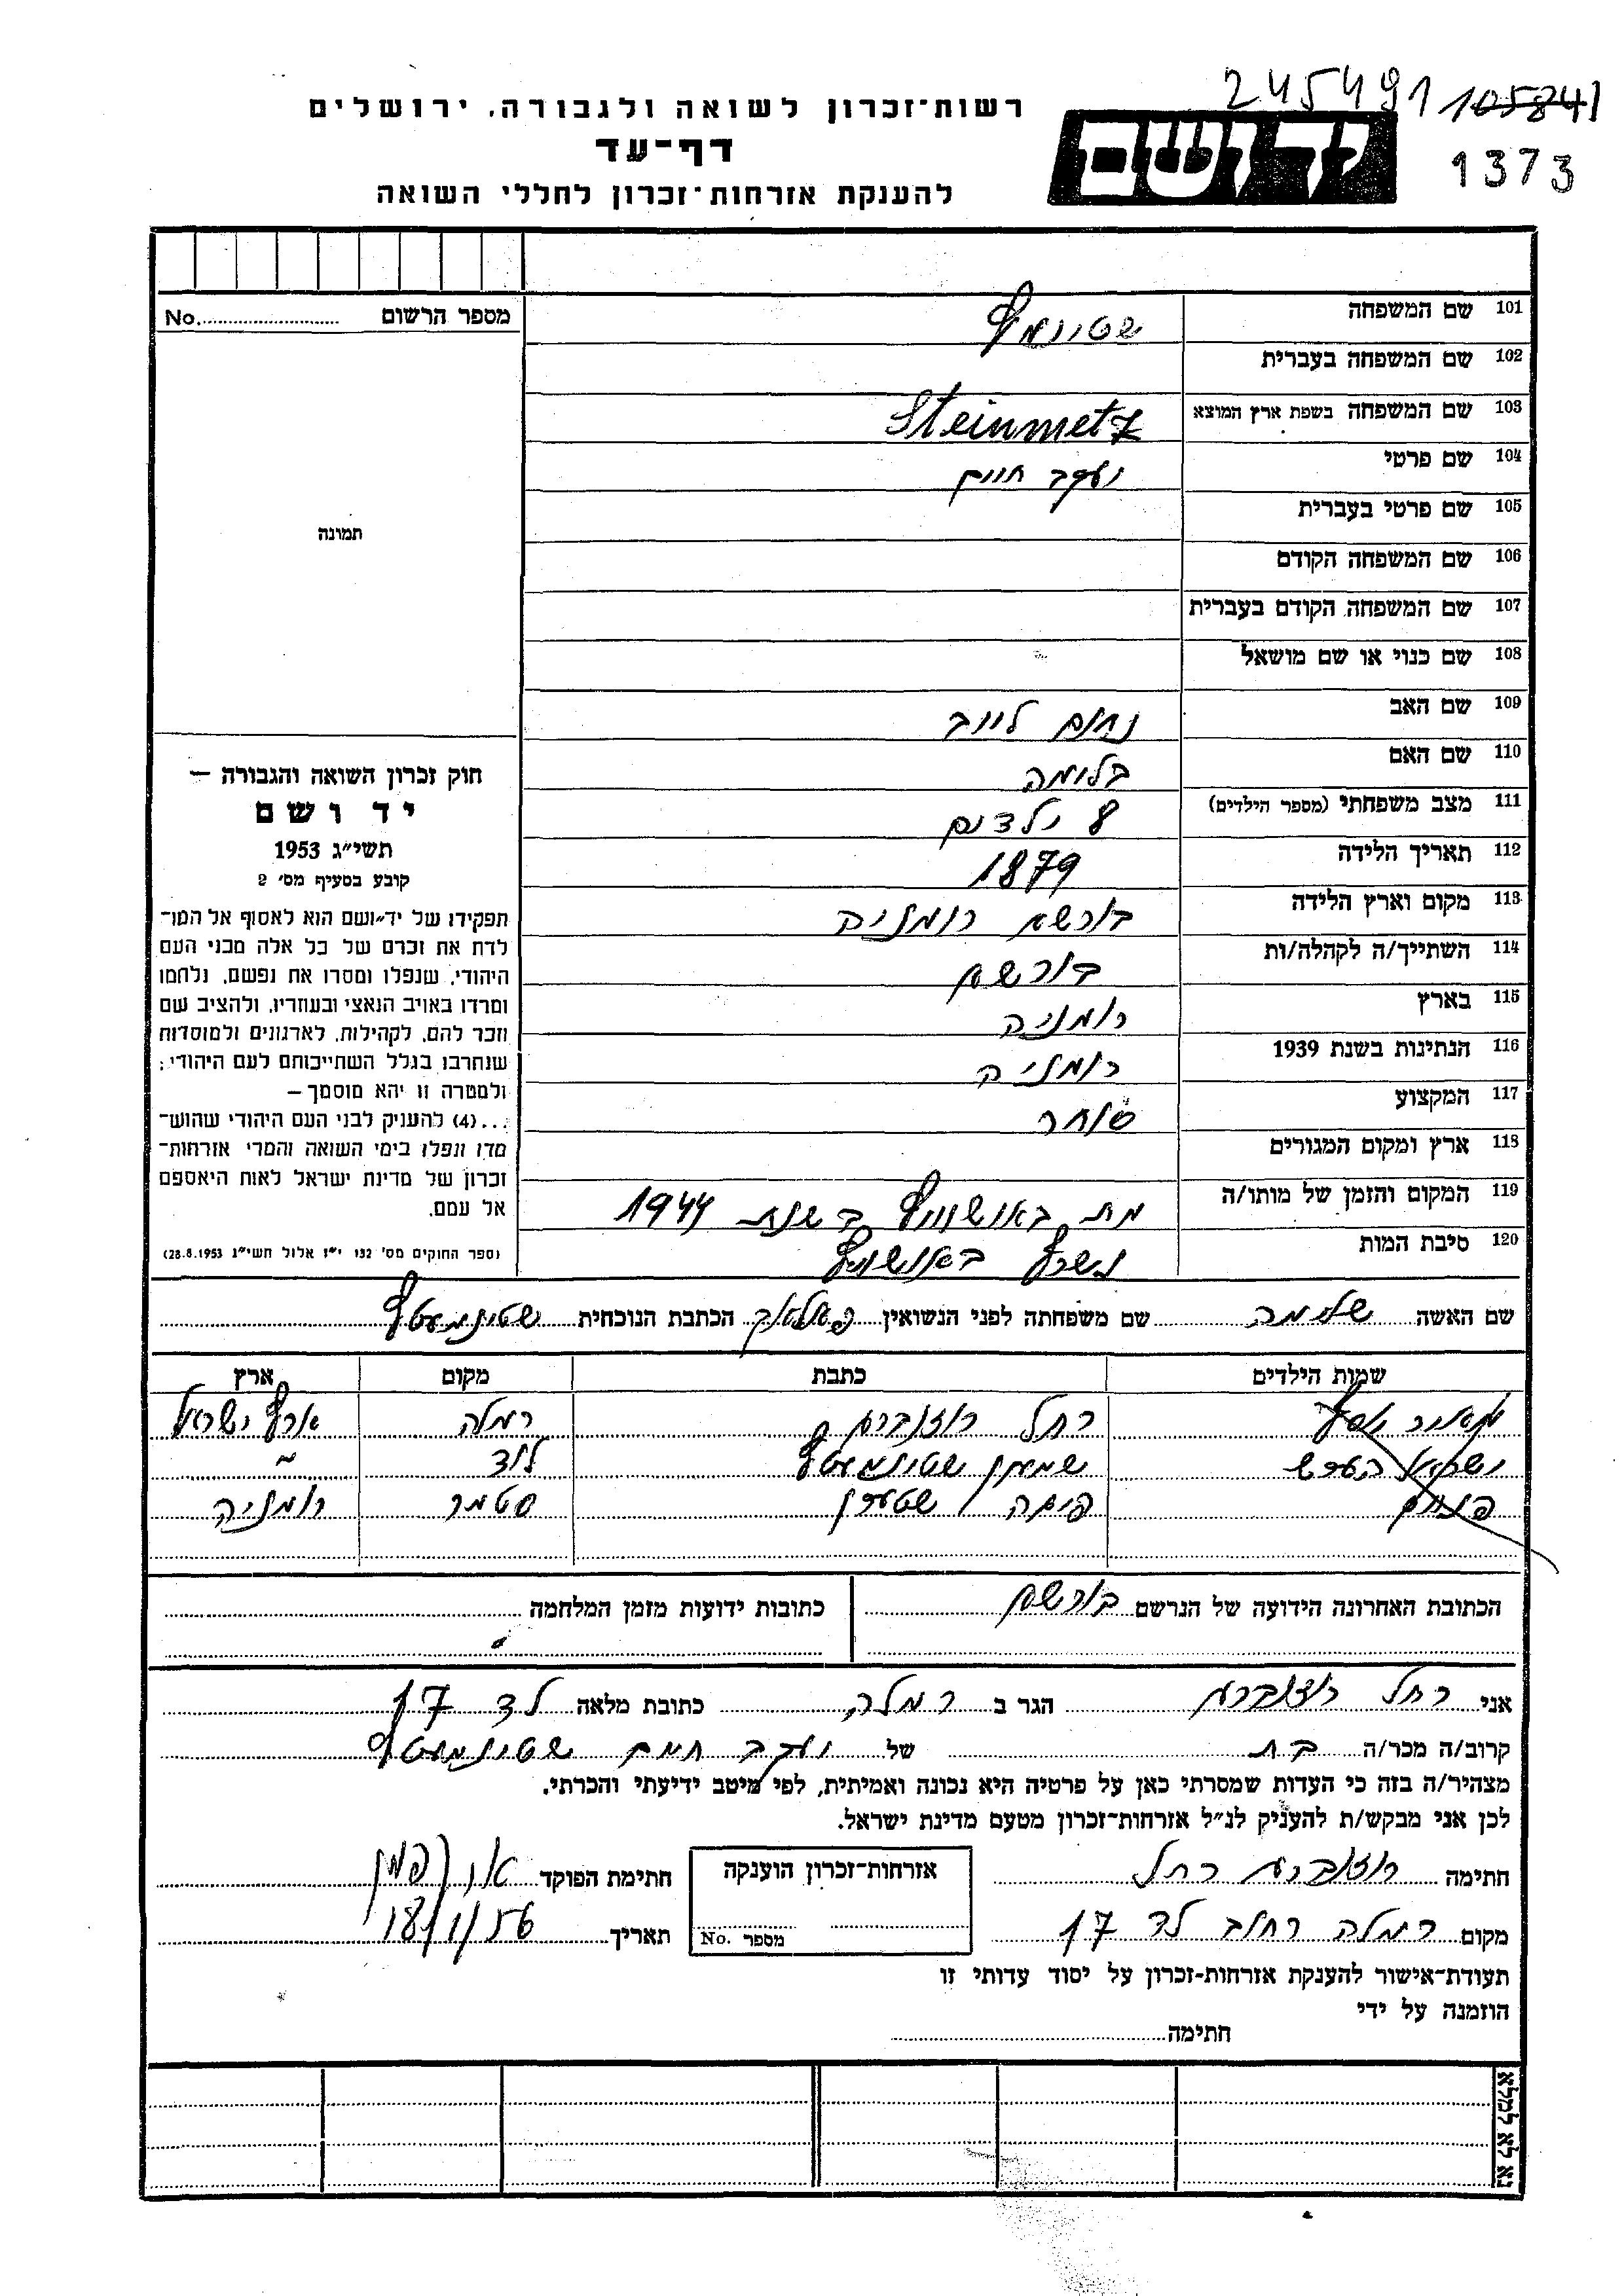 245491 105841
1373
יד ושם
רשות־זכרון לשואה ולגבורה, ירושלים
דף־עד
להענקת אזרחות־זכרון לחללי השואה
מספר הרשום No.
תמונה
101 שם המשפחה שטינמץ
102 שם המשפחה בעברית
103 שם המשפחה בשפת ארץ המוצא Steinmetz
104 שם פרטי יעקב חיים
105 שם פרטי בעברית
106 שם המשפחה הקודם
107 שם המשפחה הקודם בעברית
108 שם כנוי או שם מושאל
109 שם האב נחום לייב
110 שם האם בלומה
111 מצב משפחתי (מספר הילדים) 8 ילדים
112 תאריך הלידה 1879
113 מקום וארץ הלידה בורשא רומניה
114 השתייך/ה לקהלה/ות בורשא
115 בארץ רומניה
116 הנתינות בשנת 1939 רומניה
117 המקצוע סוחר
118 ארץ ומקום המגורים
119 המקום והזמן של מותו/ה מת באושוויץ בשנת 1944
120 סיבת המות נשרף באושויץ
חוק זכרון השואה והגבורה —
יד ושם
תשי״ג 1953
קובע בסעיף מס׳ 2
תפקידו של יד־ושם הוא לאסוף אל המו־
לדת את זכרם של כל אלה מבני העם
היהודי, שנפלו ומסרו את נפשם, נלחמו
ומרדו באויב הנאצי ובעוזריו, ולהציב שם
וזכר להם, לקהילות, לארגונים ולמוסדות
שנחרבו בגלל השתייכותם לעם היהודי;
ולמטרה זו יהא מוסמך —
...(4) להעניק לבני העם היהודי שהוש־
מדו ונפלו בימי השואה והמרי אזרחות־
זכרון של מדינת ישראל לאות היאספם
אל עמם.
(ספר החוקים מס׳ 132 י״ז אלול תשי״ג 28.8.1953)
שם האשה שלימה שם משפחתה לפני הנשואין הכתבת הנוכחית שטינמעטץ
שמות הילדים כתבת מקום ארץ
רחל רוזנברג רמלה ארץ ישראל
שמעון שטינמעטץ לוד ~
שטערן סטמר רומניה
הכתובת האחרונה הידועה של הנרשם בורשא כתובות ידועות מזמן המלחמה
אני רחל רוזנברג הגר ב רמלה כתובת מלאה לד 17
קרוב/ה מכר/ה בת של יעקב חיים שטינמעטץ
מצהיר/ה בזה כי העדות שמסרתי כאן על פרטיה היא נכונה ואמיתית, לפי מיטב ידיעתי והכרתי.
לכן אני מבקש/ת להעניק לנ״ל אזרחות־זכרון מטעם מדינת ישראל.
חתימה רוזנברג רחל אזרחות־זכרון הוענקה חתימת הפוקד
מקום רמלה רחוב לד 17 מספר No. תאריך 18/1/56
תעודת־אישור להענקת אזרחות־זכרון על יסוד עדותי זו
הוזמנה על ידי
חתימה
נא לא למלא